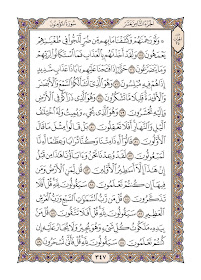 الجزء الثامن عشر سورة المؤمنون
۞ وَلَوْ رَحِمْنَٰهُمْ وَكَشَفْنَا مَا بِهِم مِّن ضُرٍّ لَّلَجُّوا۟ فِى طُغْيَٰنِهِمْ
يَعْمَهُونَ ٧٥ وَلَقَدْ أَخَذْنَٰهُم بِٱلْعَذَابِ فَمَا ٱسْتَكَانُوا۟ لِرَبِّهِمْ
وَمَا يَتَضَرَّعُونَ ٧٦ حَتَّىٰٓ إِذَا فَتَحْنَا عَلَيْهِم بَابًا ذَا عَذَابٍ شَدِيدٍ
إِذَا هُمْ فِيهِ مُبْلِسُونَ ٧٧ وَهُوَ ٱلَّذِىٓ أَنشَأَ لَكُمُ ٱلسَّمْعَ وَٱلْأَبْصَٰرَ
وَٱلْأَفْـِٔدَةَ قَلِيلًا مَّا تَشْكُرُونَ ٧٨ وَهُوَ ٱلَّذِى ذَرَأَكُمْ فِى ٱلْأَرْضِ
وَإِلَيْهِ تُحْشَرُونَ ٧٩ وَهُوَ ٱلَّذِى يُحْىِۦ وَيُمِيتُ وَلَهُ ٱخْتِلَٰفُ
ٱلَّيْلِ وَٱلنَّهَارِ أَفَلَا تَعْقِلُونَ ٨٠ بَلْ قَالُوا۟ مِثْلَ مَا قَالَ
ٱلْأَوَّلُونَ ٨١ قَالُوٓا۟ أَءِذَا مِتْنَا وَكُنَّا تُرَابًا وَعِظَٰمًا أَءِنَّا
لَمَبْعُوثُونَ ٨٢ لَقَدْ وُعِدْنَا نَحْنُ وَءَابَآؤُنَا هَٰذَا مِن قَبْلُ
إِنْ هَٰذَآ إِلَّآ أَسَٰطِيرُ ٱلْأَوَّلِينَ ٨٣ قُل لِّمَنِ ٱلْأَرْضُ وَمَن
فِيهَآ إِن كُنتُمْ تَعْلَمُونَ ٨٤ سَيَقُولُونَ لِلَّهِ قُلْ أَفَلَا
تَذَكَّرُونَ ٨٥ قُلْ مَن رَّبُّ ٱلسَّمَٰوَٰتِ ٱلسَّبْعِ وَرَبُّ ٱلْعَرْشِ
ٱلْعَظِيمِ ٨٦ سَيَقُولُونَ لِلَّهِ قُلْ أَفَلَا تَتَّقُونَ ٨٧ قُلْ مَنۢ
بِيَدِهِۦ مَلَكُوتُ كُلِّ شَىْءٍ وَهُوَ يُجِيرُ وَلَا يُجَارُ عَلَيْهِ إِن
كُنتُمْ تَعْلَمُونَ ٨٨ سَيَقُولُونَ لِلَّهِ قُلْ فَأَنَّىٰ تُسْحَرُونَ ٨٩
٣٤٧